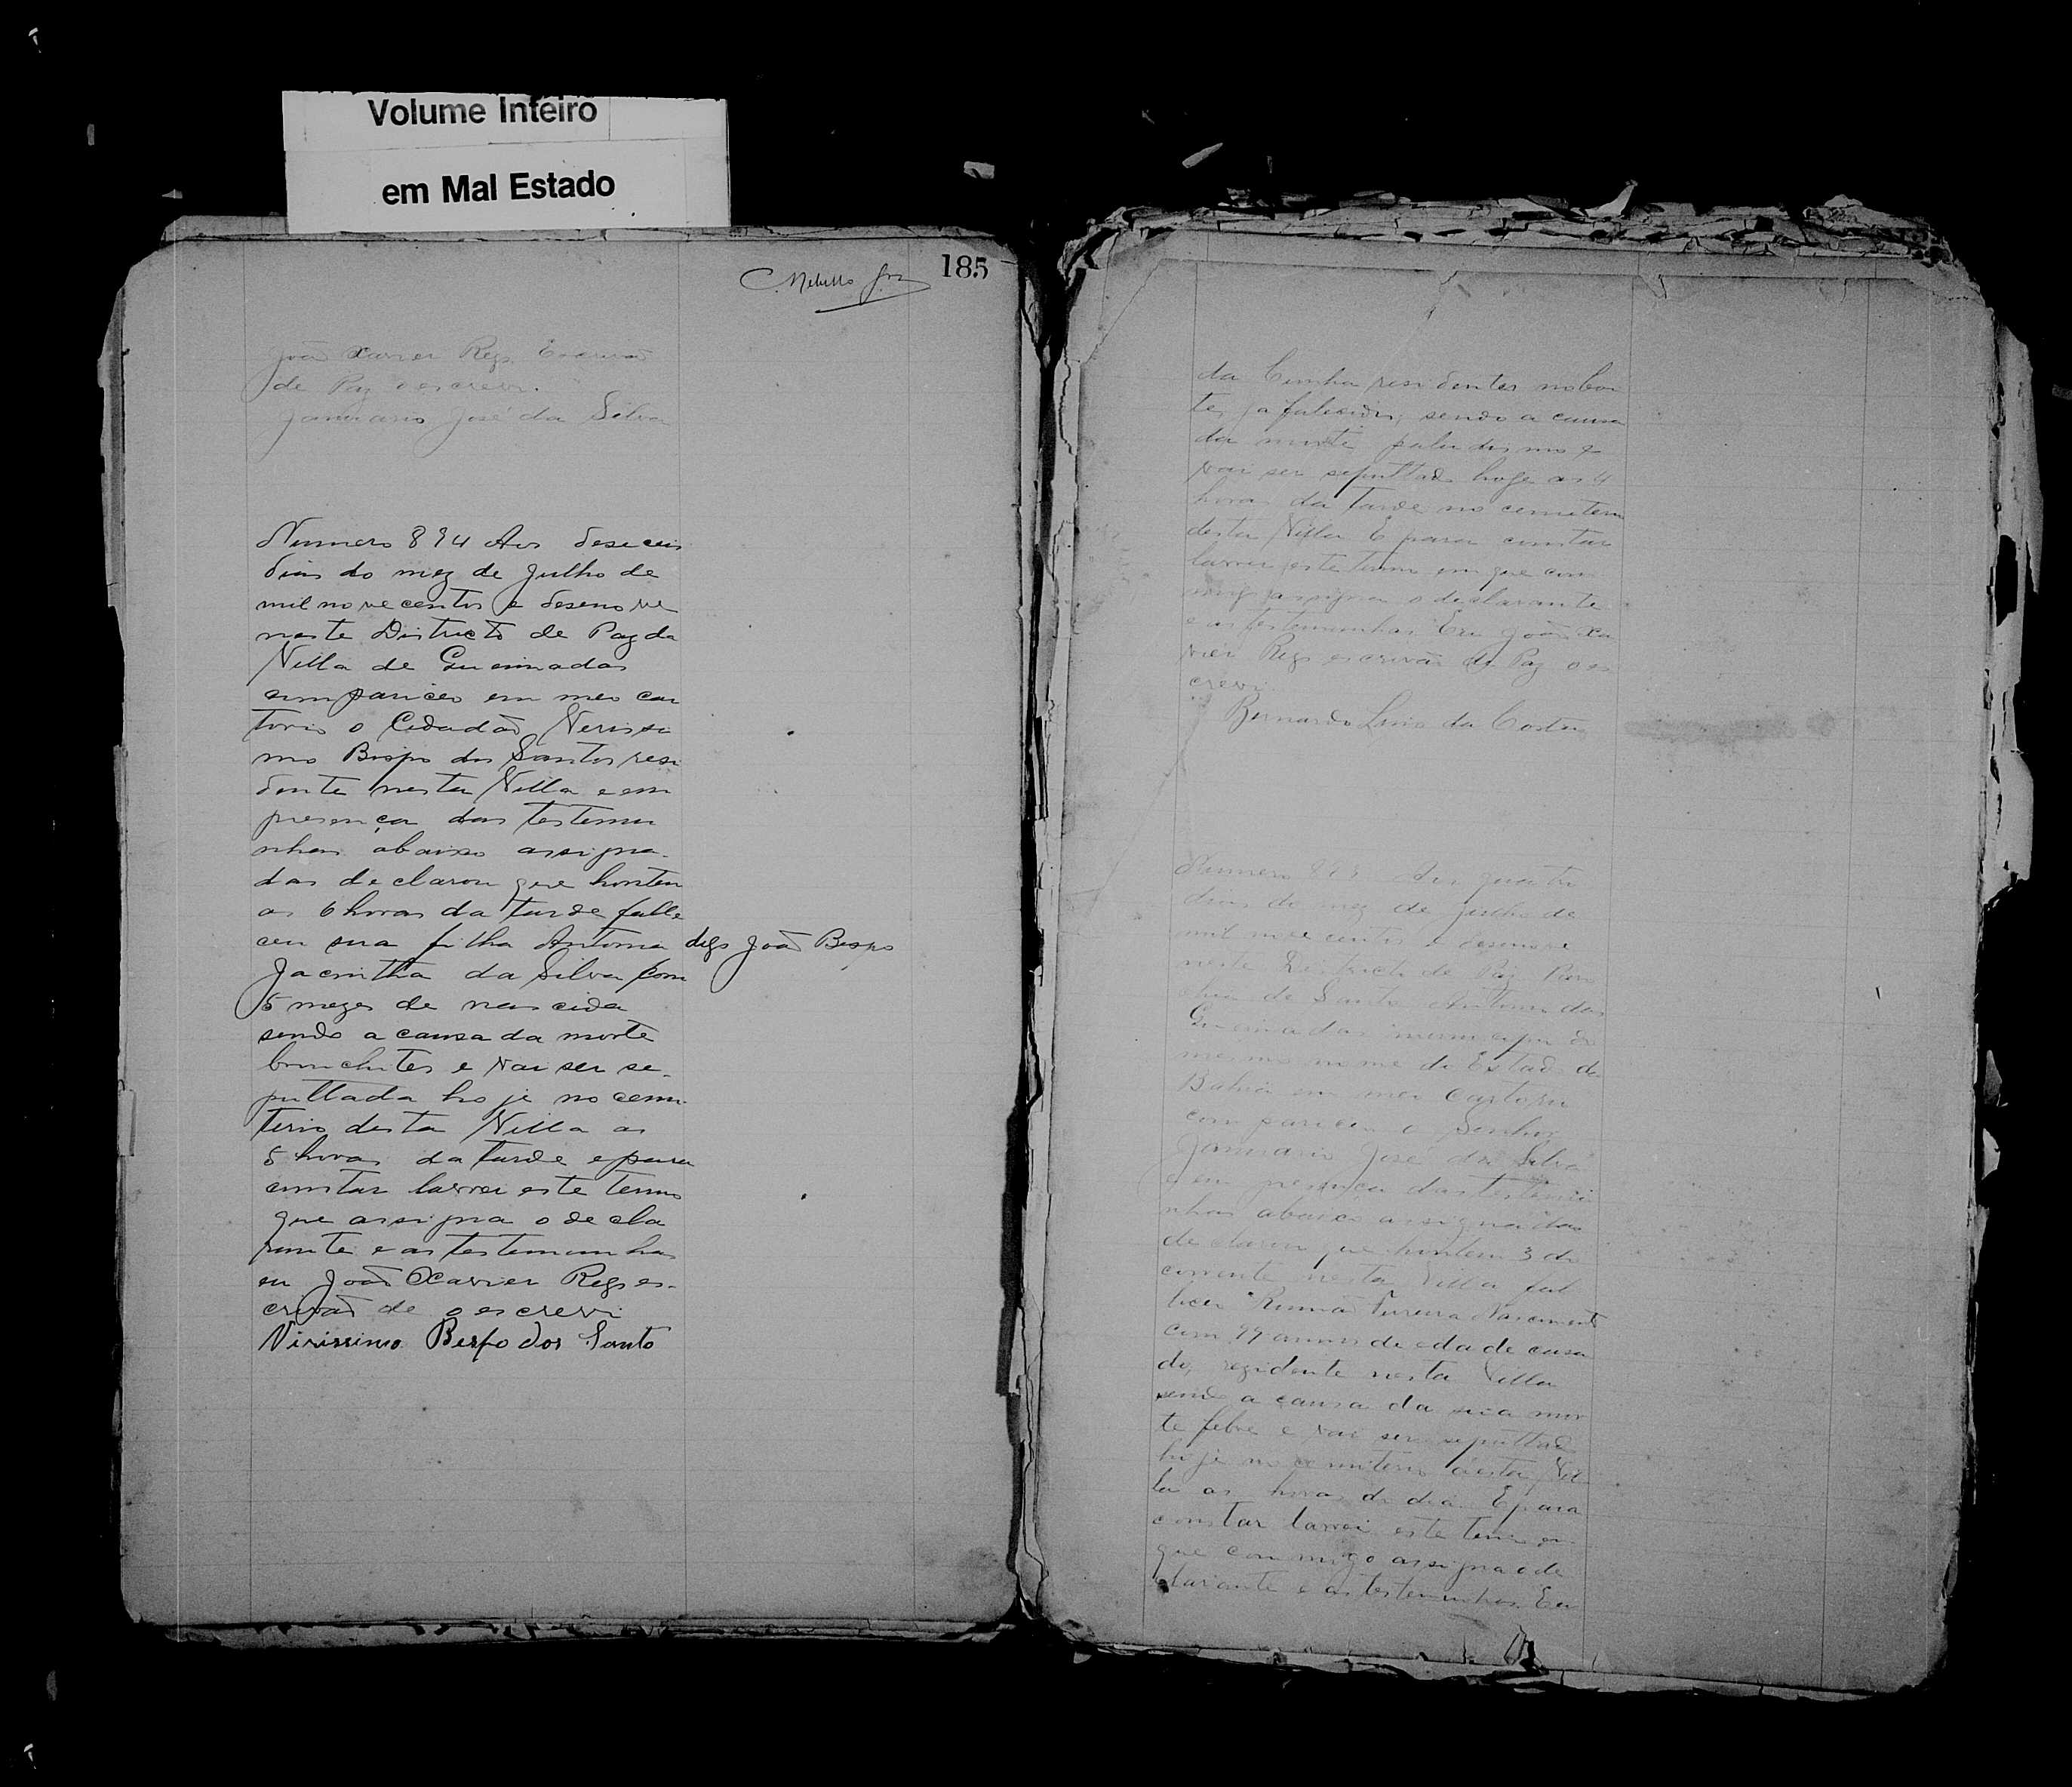 Volume Inteiro
em Mal Estado
185
João Xavier Rego Escrivão
de Paz o escrevi.
Januario José da Silva
Numero 894 Aos deseceis
dias do mez de Julho de
mil nove centos e desenove
neste Districto de Paz da
Villa de Queimadas
compariceo em meo car
torio o Cidadão Verissi
mo Bispo dos Santos resi
dente nesta Villa e em
presença das testemu
nhas abaixo assigna-
das declarou que hontem
as 6 horas da tarde falle
ceu sua filha Antonia digo João Bispo
Jacintha da Silva com
5 mezes de nascida
sendo a causa da morte
bronchites e vai ser se-
pultada hoje no cemi
terio desta Villa as
5 horas da tarde e para
constar lavrei este termo
que assigna o decla
rante e as testemunhas
eu João Xavier Rego es-
crivão de o escrevi
Virissimo Bispo dos Santo
da Cunha residentes
ja falecidos, sendo a causa
da morte paludismo e
vai ser sepultado hoje as 4
horas da tarde no cemiterio
desta Villa E para constar
lavrei este termo em que com
migo assigna o declarante
e as testemunhas Eu João Xa
vier Rego escrivão de Paz o es
crevi
Bernardo Lino da Costa
Numero Aos quatro
dias do mez de Julho de
mil nove centos e desenove
neste Districto de Paz Paro
chia de Santo Antonio das
Queimadas municipio do
mesmo nome do Estado da
Bahia em meo Cartorio
compariceu o Senhor
Januario José da Silva
e em presença das testemu
nhas abaixo assignadas
declarou que hontem 3 do
corrente nesta Villa fal
leceu Ferreira Nascimento
com 99 annos de edade casa
do, rezidente nesta Villa
sendo a causa da sua mor
te febre e vai ser sepultado
hoje no cemiterio desta Vil
la as horas do dia E para
constar lavrei este termo em
que commigo assigna o de
clarante e as testemunhas Eu